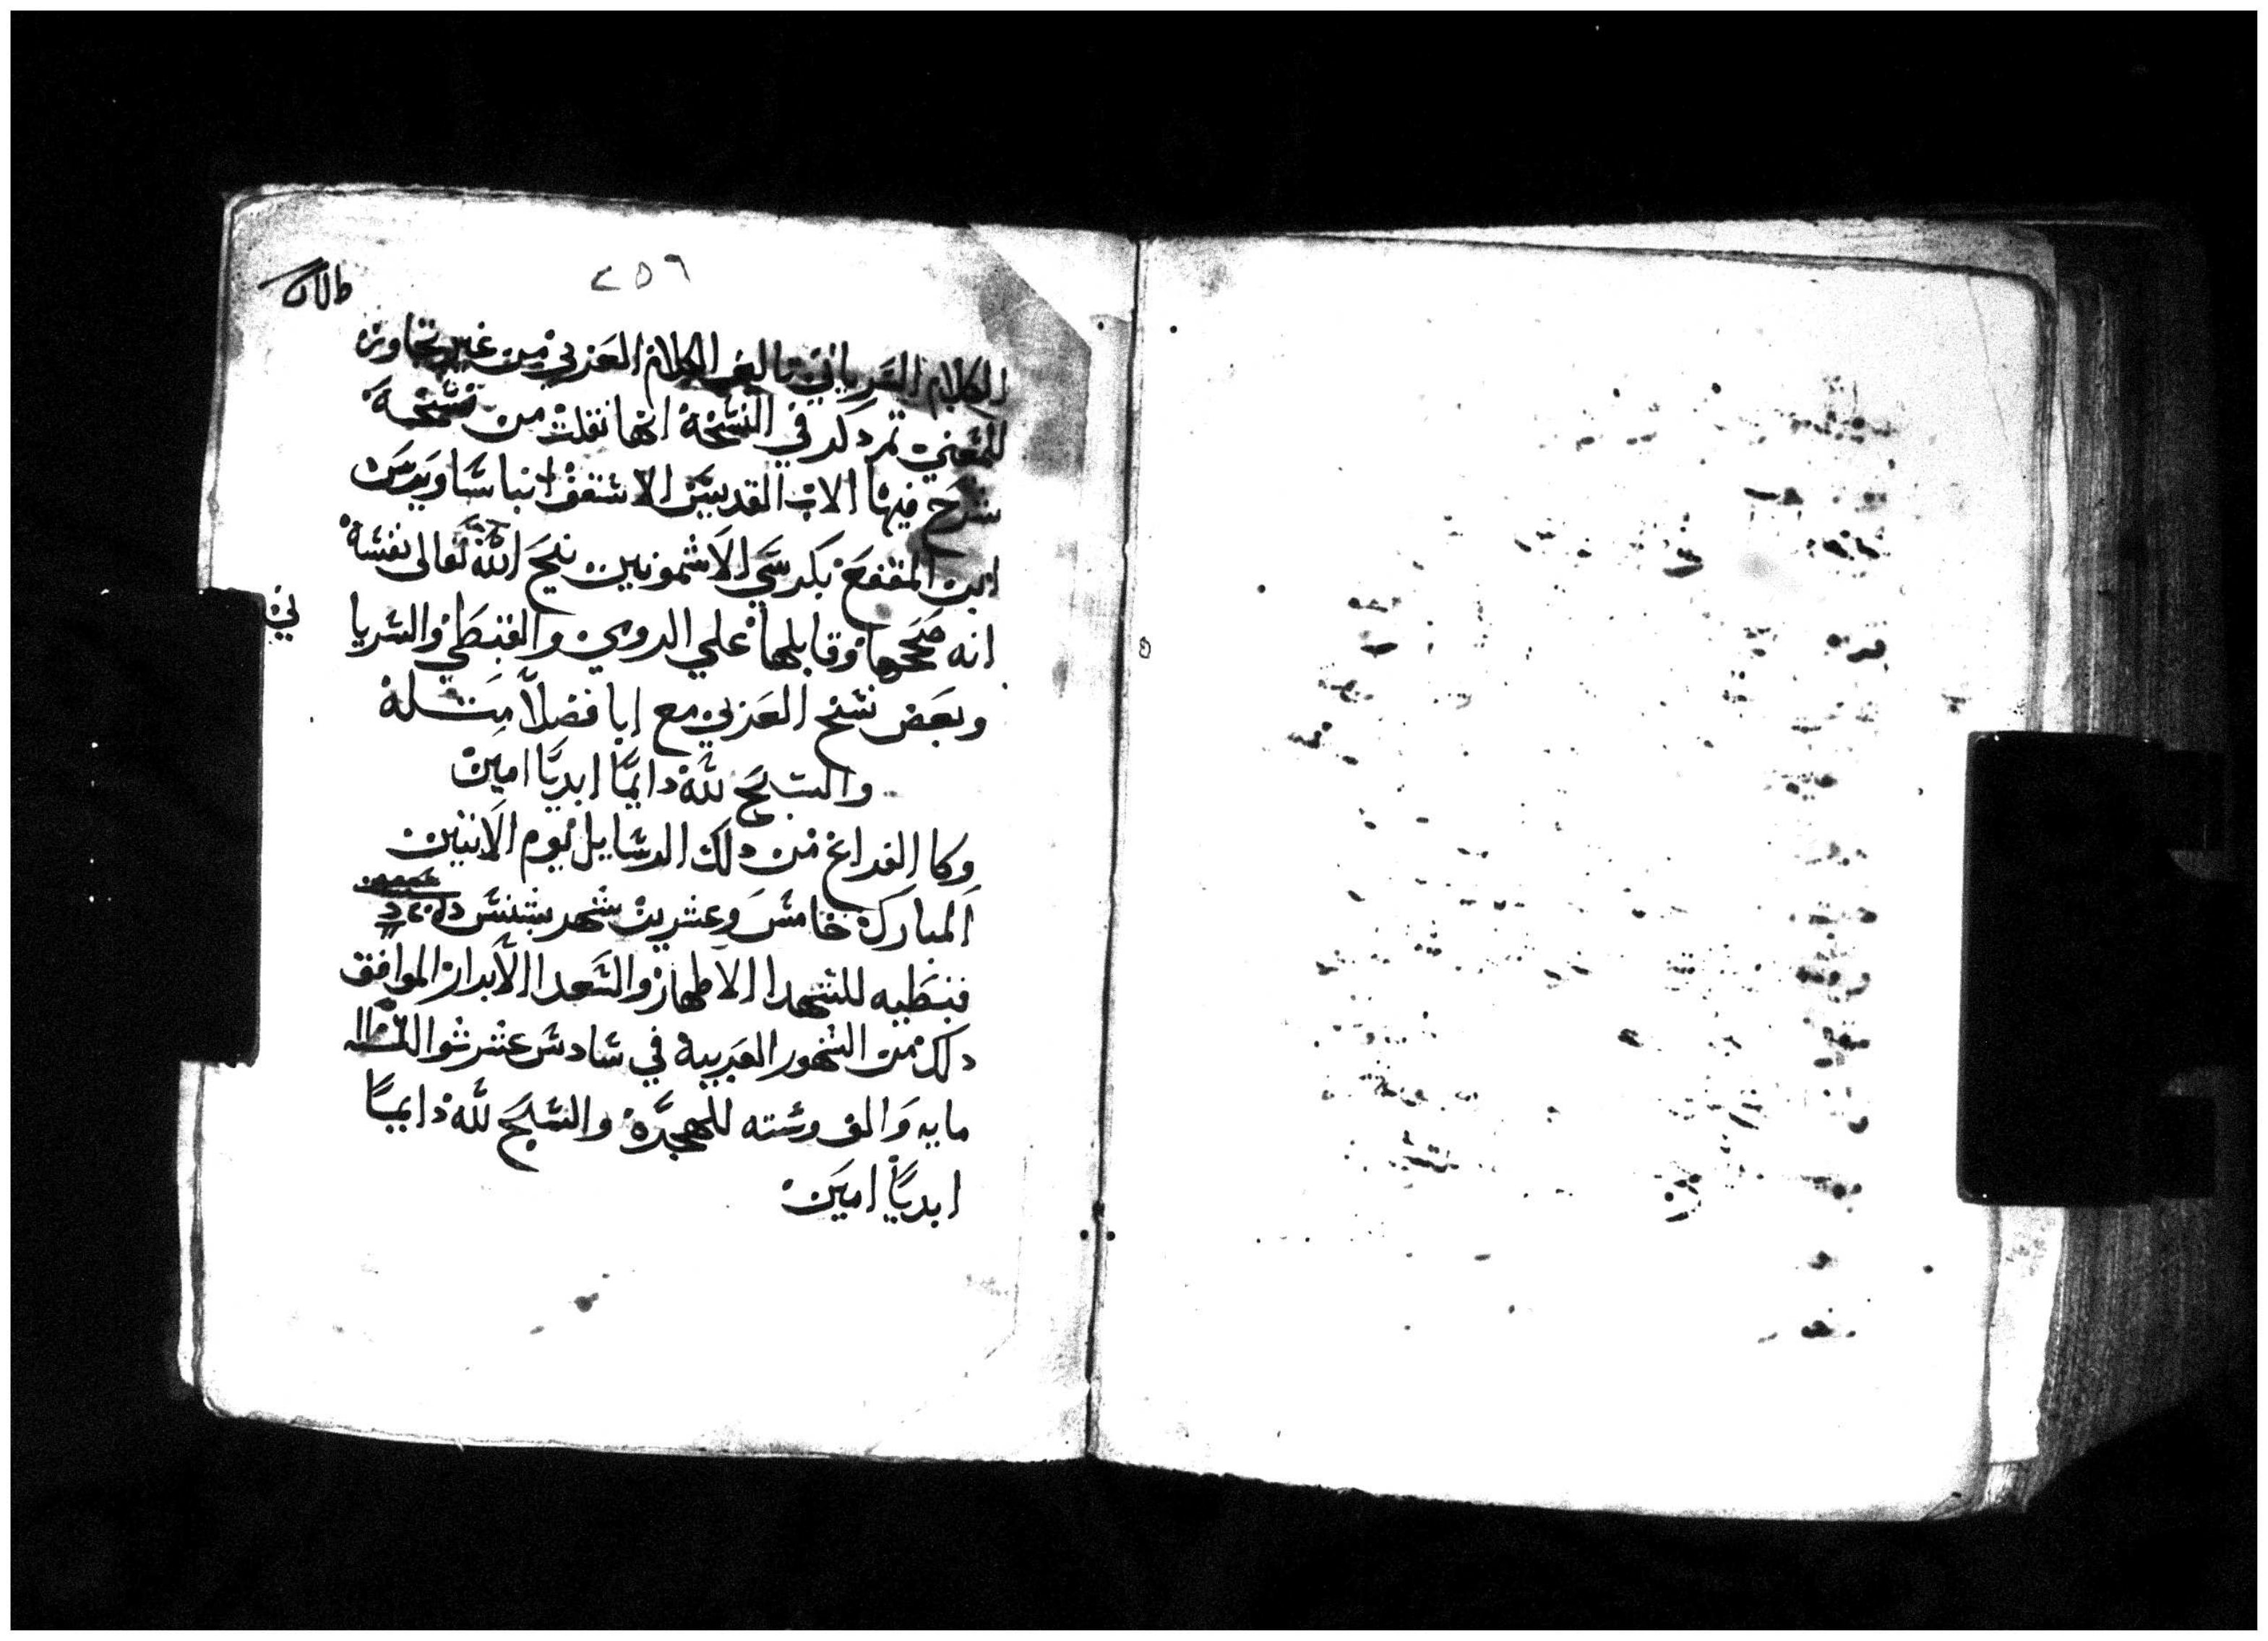 ٢٥٦
الكلام السرياني تاليف الكلام العربي من غير تجاوز
للمعني تم دكر في النسخة انها نقلت من نسخة
شرح فيها الاب القديس الاسقف انبا ساويرس
ابن المقفع بكرسي الاشمونين نيح الله تعالى نفسه
انه صححها وقابلها علي الرومي والقبطي والسرياني
وبعض نسخ العربي مع ابا فضلا مثله
والسبح لله دايمًا ابديًا امين
وكا الفراغ من دلك الرسايل يوم الاتنين
المبارك خامس وعشرين شهر بشنس
قبطيه للشهدا الاطهار والسعدا الابرار الموافق
دلك من الشهور العربية في سادس عشر شوال
مايه والف وسته للهجرة والسبح لله دايمًا
ابديًا امين